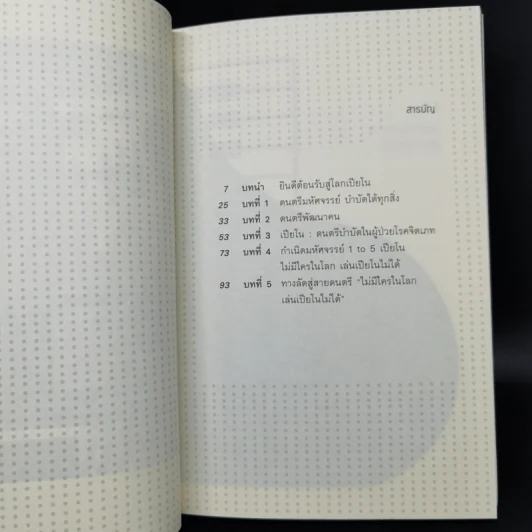 สารบัญ
7 บทนำ ยินดีต้อนรับสู่โลกเปียโน
25 บทที่ 1 ดนตรีมหัศจรรย์ บำบัดได้ทุกสิ่ง
33 บทที่ 2 ดนตรีพัฒนาคน
53 บทที่ 3 เปียโน : ดนตรีบำบัดในผู้ป่วยโรคจิตเภท
73 บทที่ 4 กำเนิดมหัศจรรย์ 1 to 5 เปียโน
ไม่มีใครในโลก เล่นเปียโนไม่ได้
93 บทที่ 5 ทางลัดสู่สายดนตรี "ไม่มีใครในโลก
เล่นเปียโนไม่ได้"